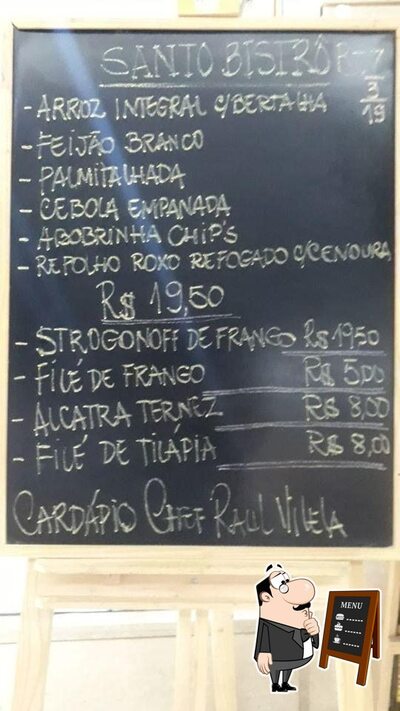 SANTO BISTRÔ R-7
3
19
- ARROZ INTEGRAL C/BERTALHA
- FEIJÃO BRANCO
- PALMITALHADA
- CEBOLA EMPANADA
- ABOBRINHA CHIP'S
- REPOLHO ROXO REFOGADO C/CENOURA
R$ 19,50
- STROGONOFF DE FRANGO R$ 19,50
- FILÉ DE FRANGO R$ 5,00
- ALCATRA TERNEZ R$ 8,00
- FILÉ DE TILÁPIA R$ 8,00
CARDÁPIO CHEF RAUL VILELA
MENU